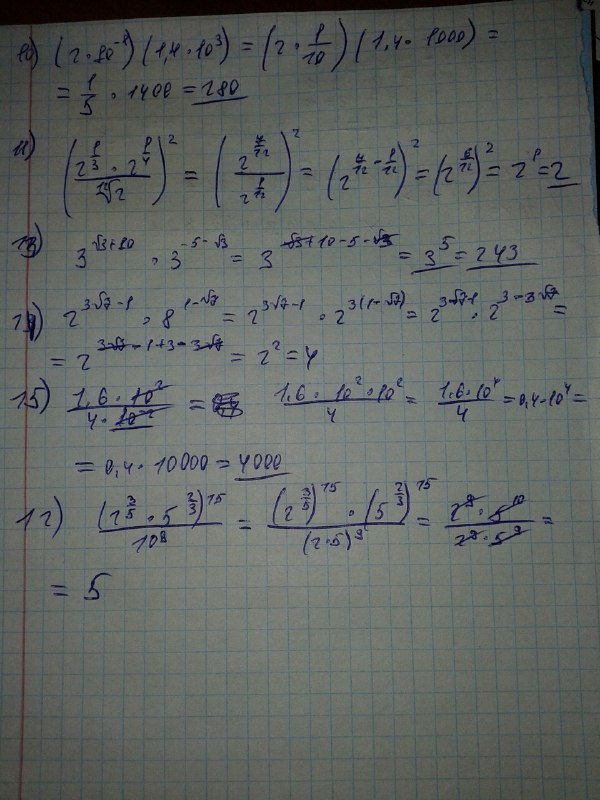 10) (2·10⁻¹)(1,4·10³) = (2·1/10)(1,4·1000) =
= 1/5 · 1400 = 280
11) ((2^(1/3) · 2^(1/4))/¹²√2)² = (2^(7/12)/2^(1/12))² = (2^(7/12 - 1/12))² = (2^(6/12))² = 2¹ = 2
13) 3^(√3+10) · 3^(-5-√3) = 3^(√3+10-5-√3) = 3⁵ = 243
14) 2^(3√7-1) · 8^(1-√7) = 2^(3√7-1) · 2^(3(1-√7)) = 2^(3√7-1) · 2^(3-3√7) =
= 2^(3√7-1+3-3√7) = 2² = 4
15) (1,6·10²)/(4·10⁻²) = (1,6·10²·10²)/4 = (1,6·10⁴)/4 = 0,4·10⁴ =
= 0,4·10000 = 4000
12) (2^(3/5) · 5^(2/3))^15/10⁹ = ((2^(3/5))^15 · (5^(2/3))^15)/(2·5)⁹ = (2⁹·5¹⁰)/(2⁹·5⁹) =
= 5